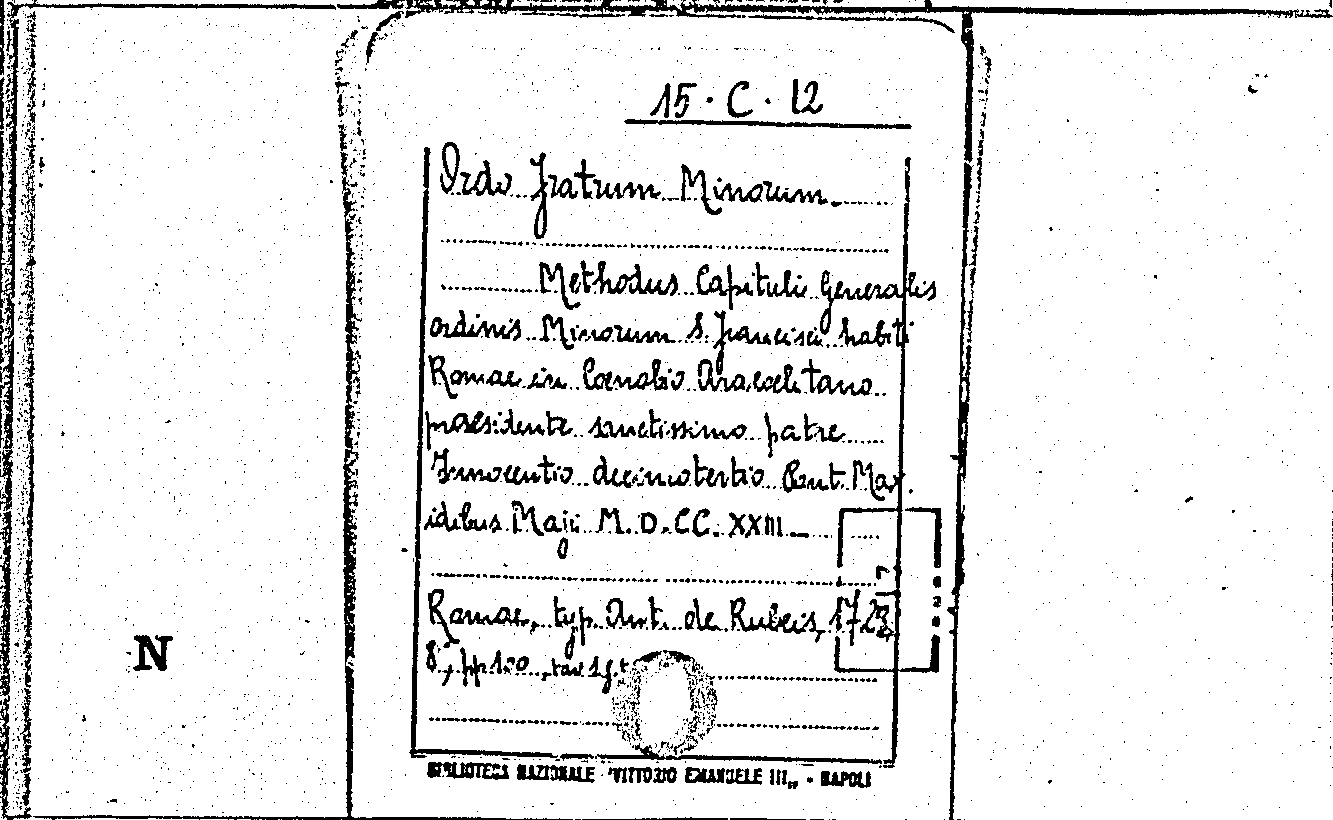 15 · C · 12
Ordo Fratrum Minorum.
Methodus Capituli Generalis
ordinis Minorum S. Francisci habiti
Romae in Coenobio Aracoelitano
praesidente sanctissimo patre
Innocentio decimotertio Pont. Max.
idibus Maji M.D.CC.XXIII
Romae, typ. Ant. de Rubeis, 1723
8°, pp 100
N
BIBLIOTECA NAZIONALE "VITTORIO EMANUELE III„ - NAPOLI